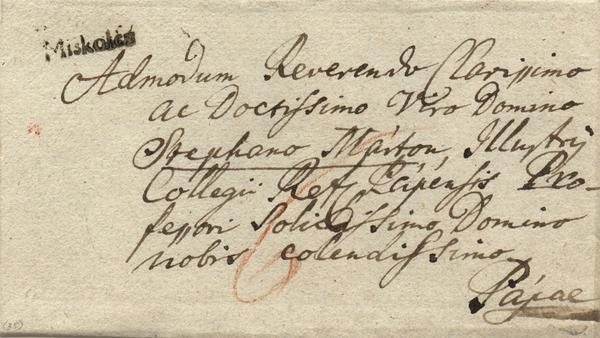 Miskolcz
Admodum Reverendo Clarissimo
ac Doctissimo Viro Domino
Stephano Márton, Illustris
Collegii Reff. Pápensis Pro-
fessori Solidissimo Domino
nobis colendissimo
Pápae
(35)